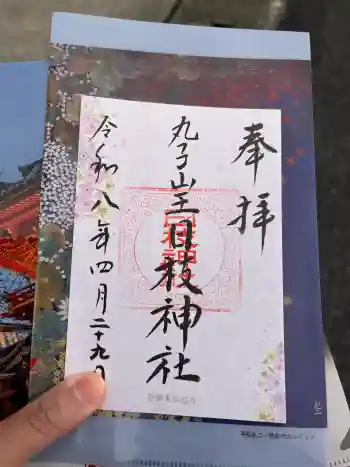 奉拝
丸子山王日枝神社
令和八年四月二十九日